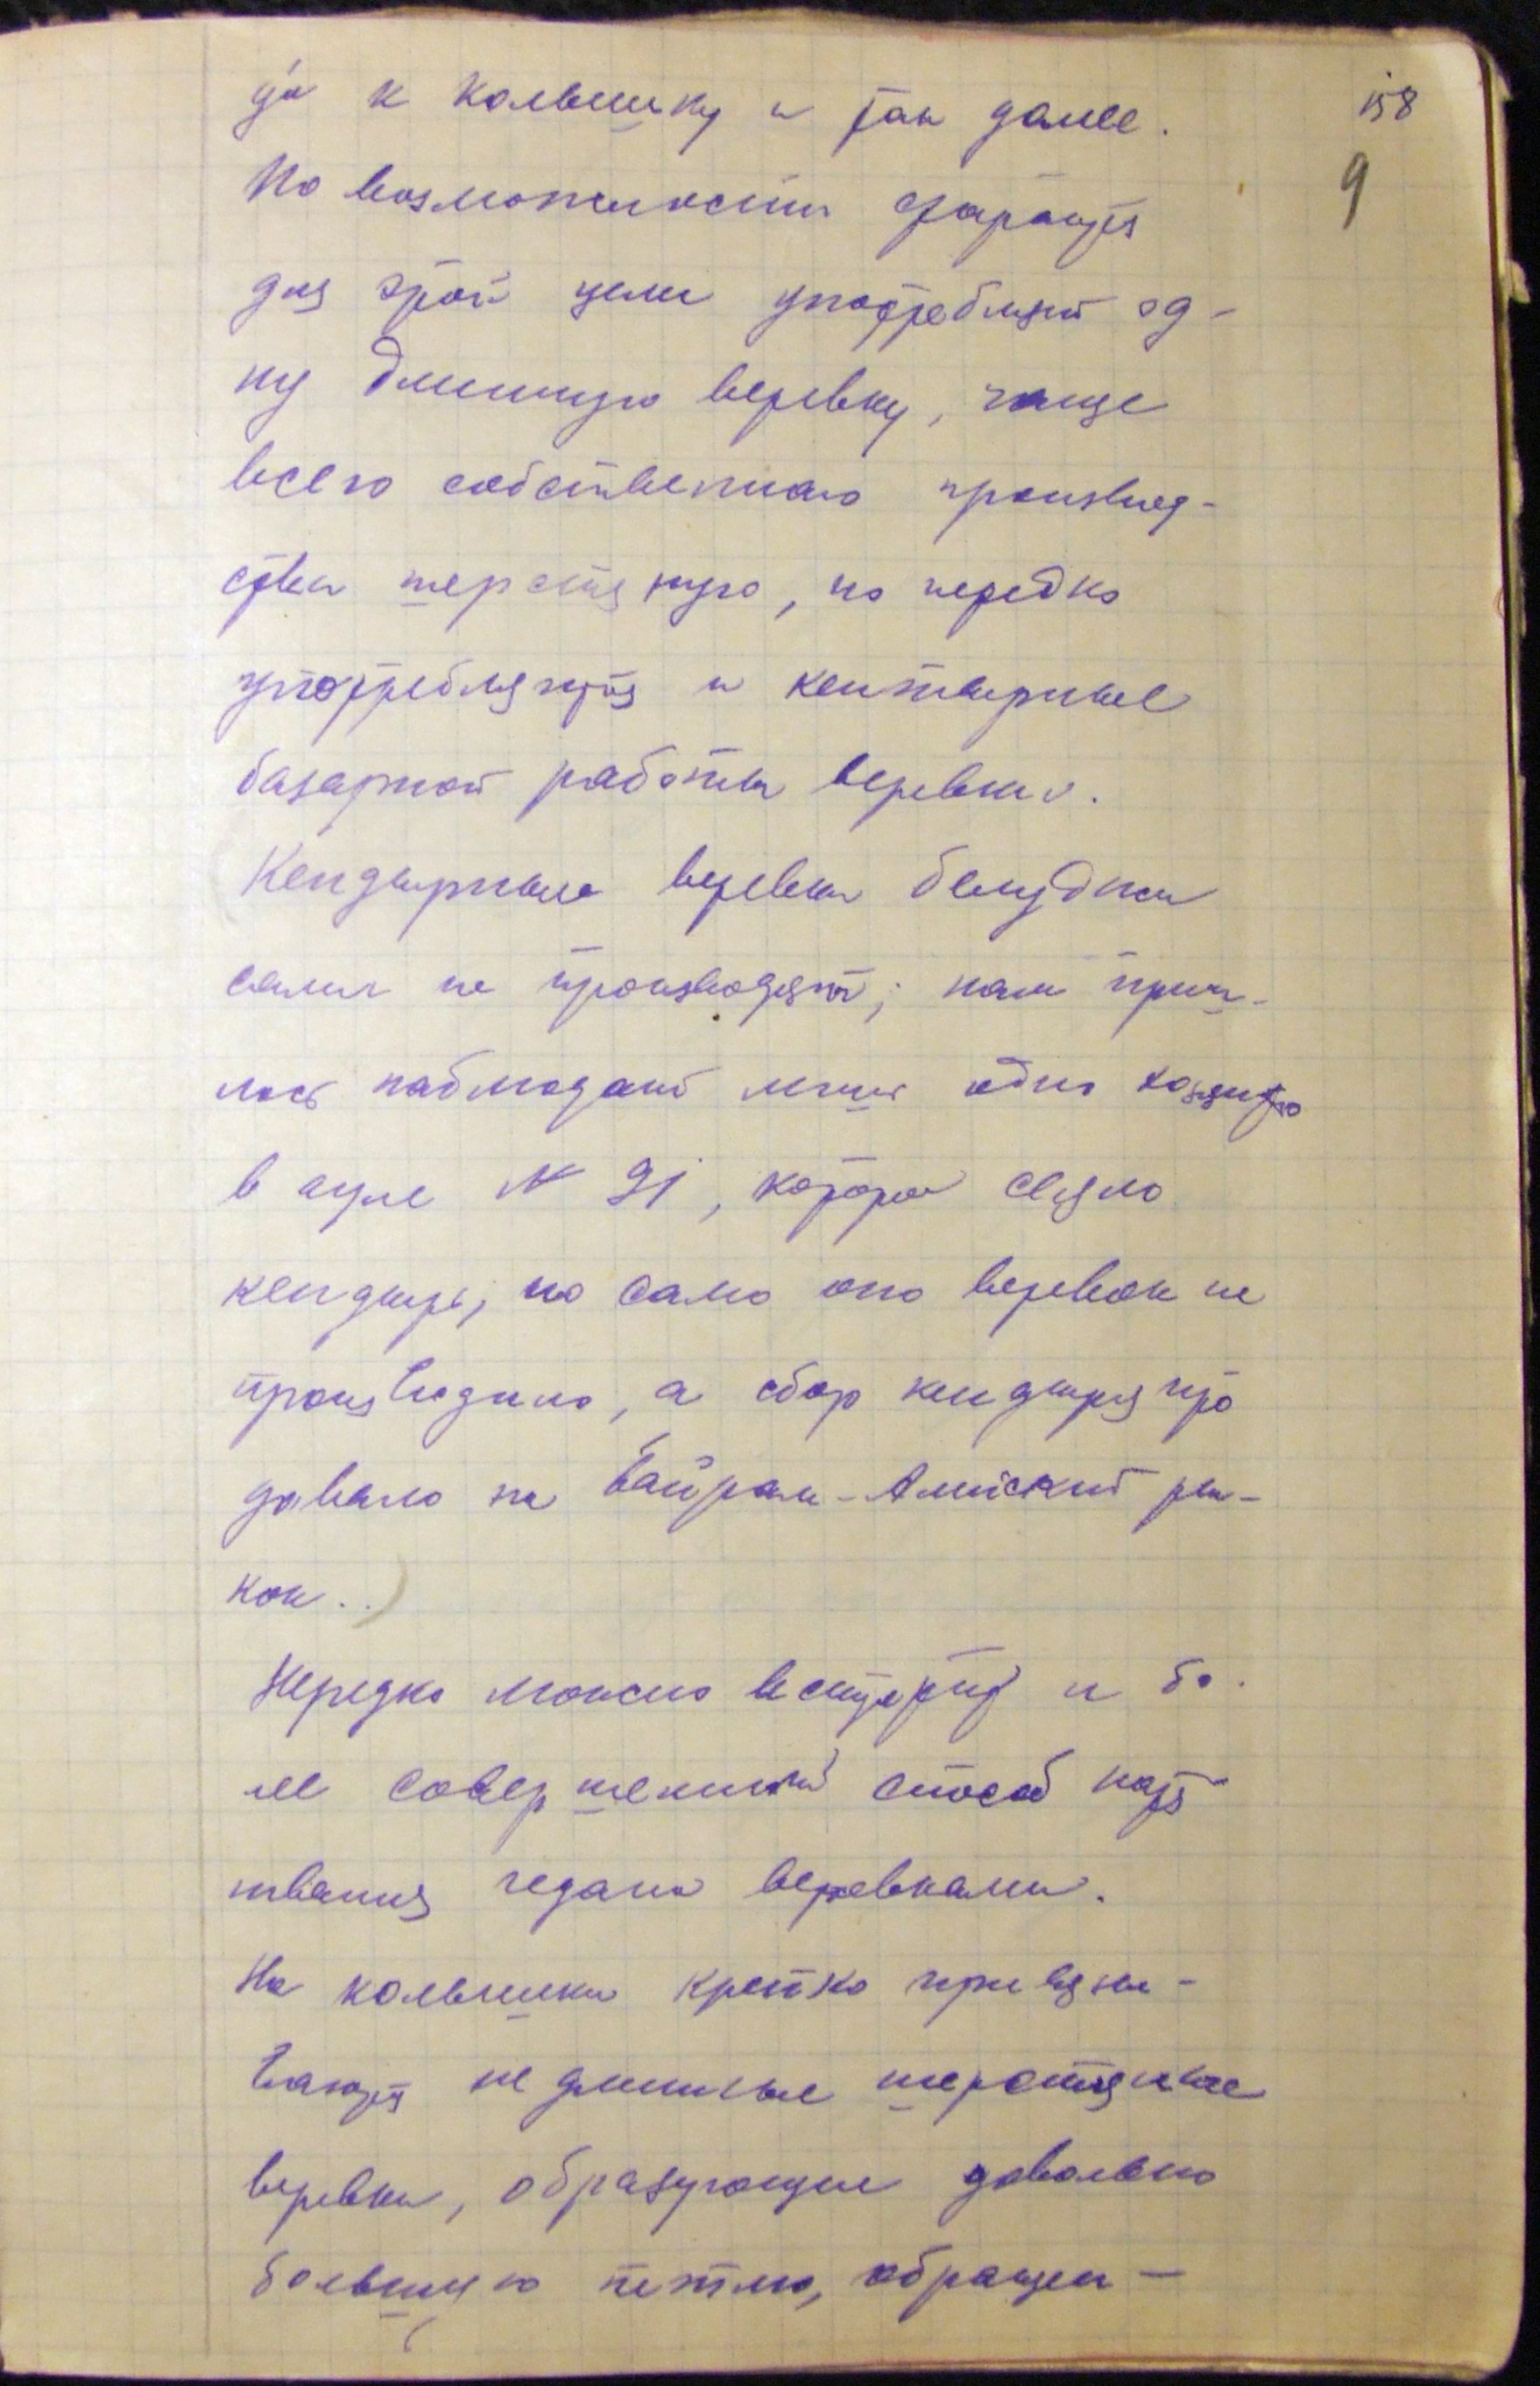 да к колышку и так далее.
158
9
По возможности стараются
для этой цели употреблять од-
ну длинную веревку, чаще
всего собственного производ-
ства шерстяную, но нередко
употребляются и кендырные
базарной работы веревки.
Кендырные веревки белуджи
сами не производят; нам приш-
лось наблюдать лишь одно хозяйство
в ауле № 21, которое сеяло
кендырь, но само оно веревок не
производило, а сбор кендыря про
давало на Байрам-Алийский ры-
нок..)
Нередко можно встретить и бо-
лее совершенный способ натя
гивания чедана веревками.
На колышки крепко привязы-
ваются не длинные шерстяные
веревки, образующие довольно
большую петлю, обращен-